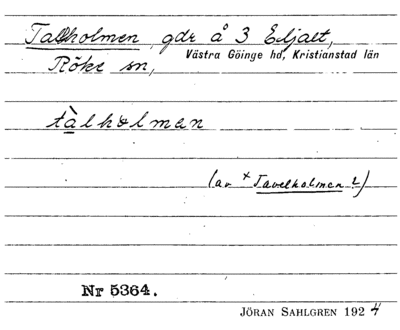 Tallholmen, gdr å 3 Eljalt,
Västra Göinge hd, Kristianstad län
Röke sn,
tàlhɵlmən
(av × Tavelholmen ?)
Nr 5364.
JÖRAN SAHLGREN 1924